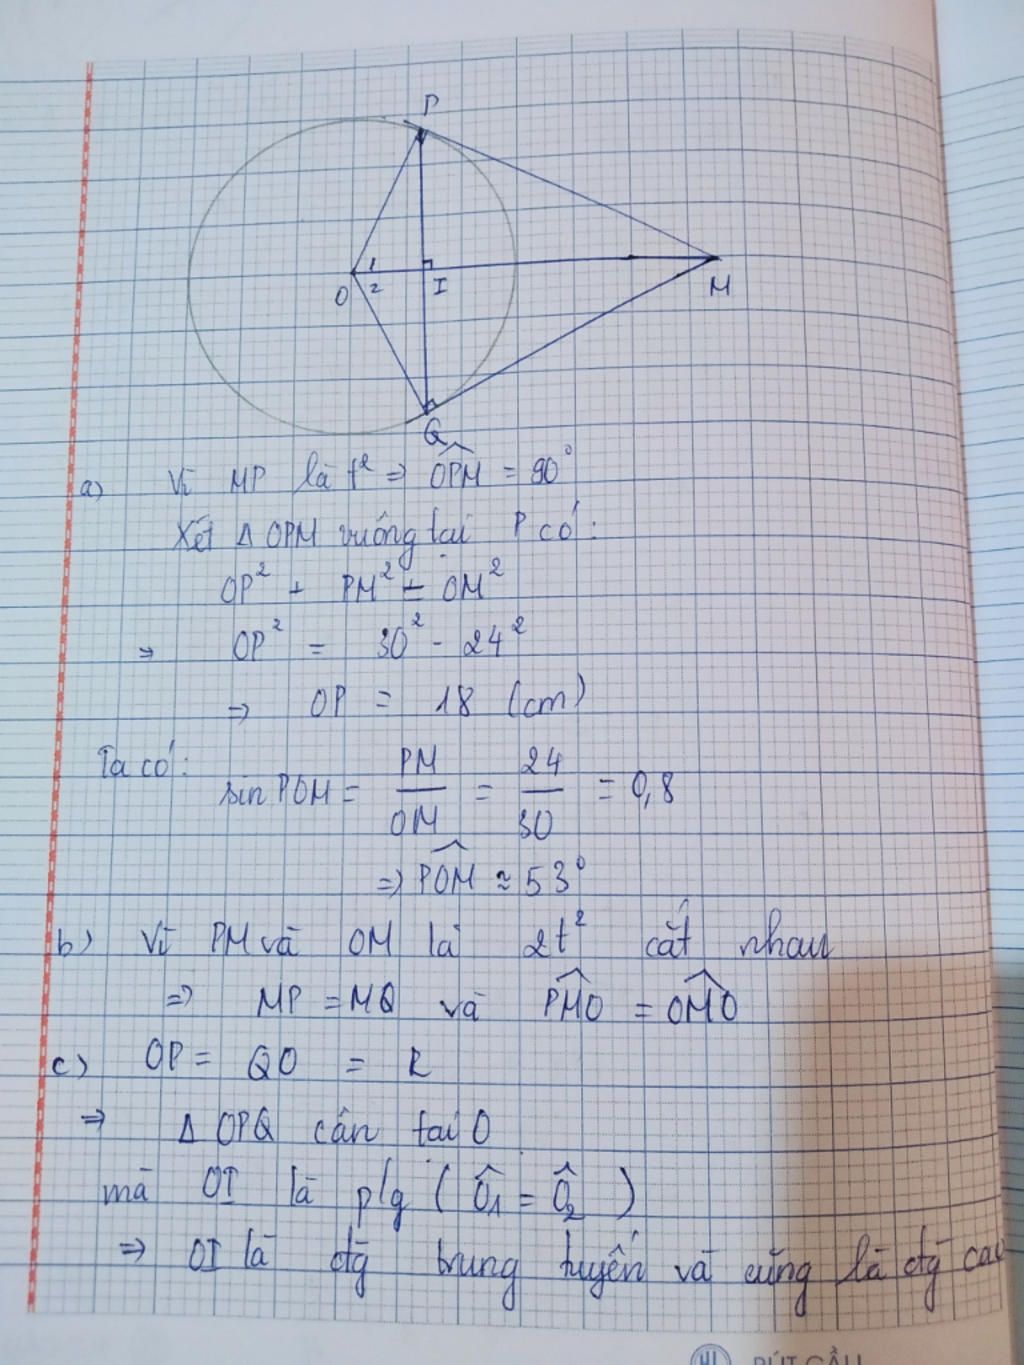 P
1
O 2 I M
Q
a) Vì MP là t² ⇒ OPM = 90°
Xét Δ OPM vuông tại P có:
OP² + PM² = OM²
⇒ OP² = 30² - 24²
⇒ OP = 18 (cm)
Ta có: sin POM = PM/OM = 24/30 = 0,8
⇒ POM ≈ 53°
b) Vì PM và OM là 2t² cắt nhau
⇒ MP = MQ và PMO = OMO
c) OP = QO = R
⇒ Δ OPQ cân tại O
mà OI là p/g (Ô1 = Ô2)
⇒ OI là đg trung tuyến và cũng là đg cao